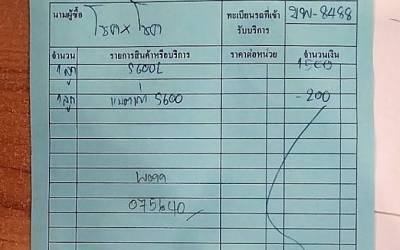 นามผู้ซื้อ โชค x โชค ทะเบียนรถที่เข้ารับบริการ 8488
จำนวน รายการสินค้าหรือบริการ ราคาต่อหน่วย จำนวนเงิน
1 ลูก S600L 1500
1 ลูก แบตเก่า S600 -200
075640